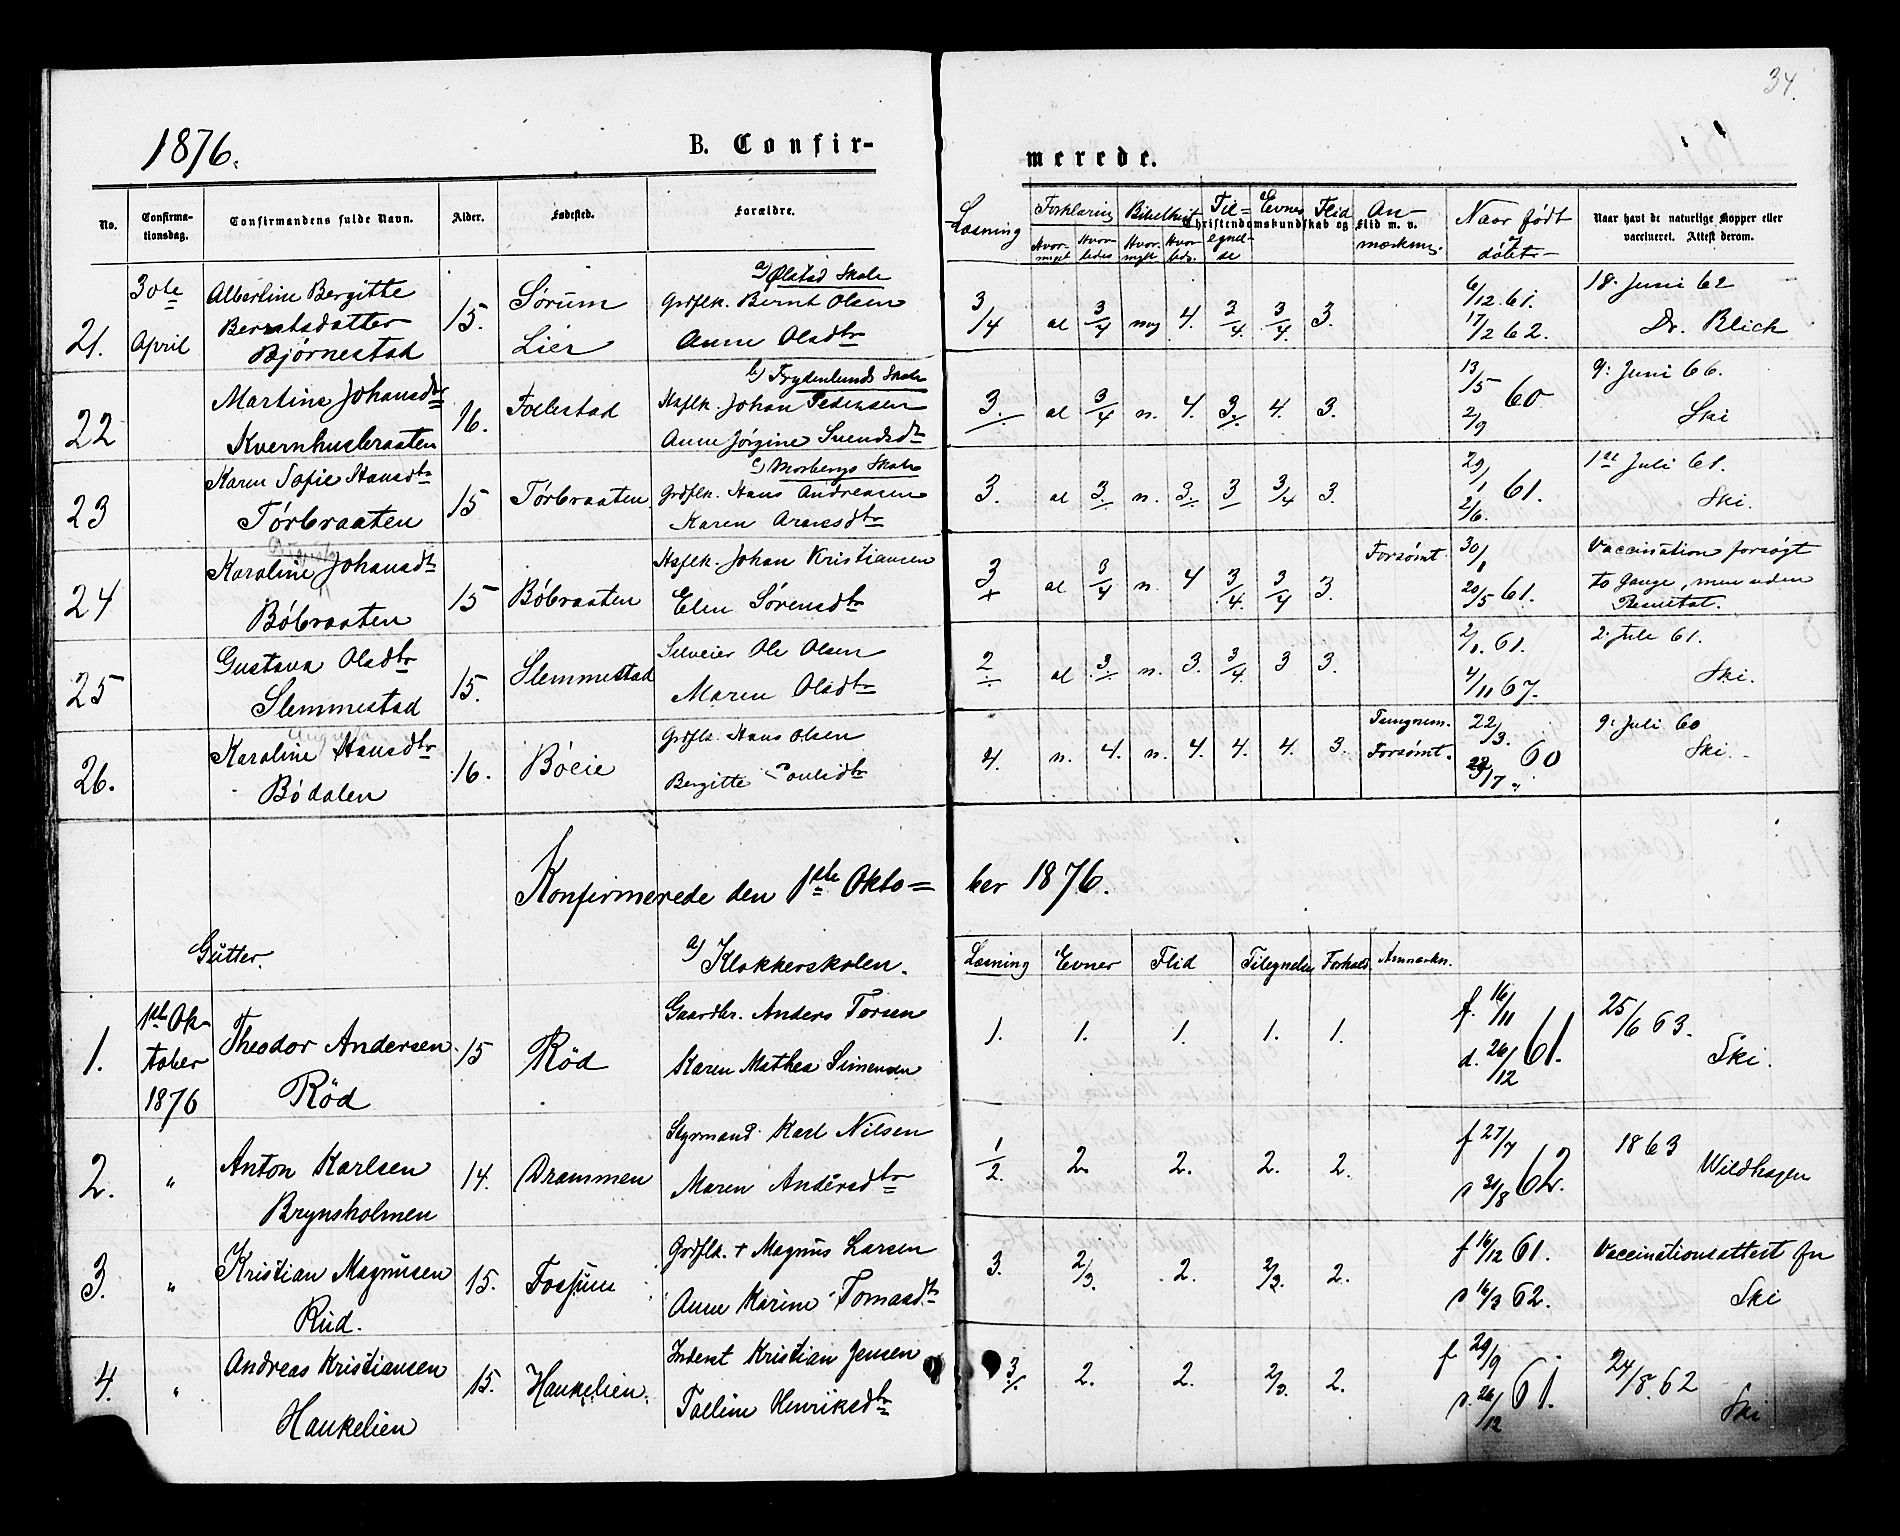 34.
1876.
B. Confir-
merede.
No.
Confirma-
tionsdag.
Confirmandens fulde Navn.
Alder.
Fødested.
Forældre.
Læsning
Forklaring
Hvor-
meget
Hvor-
ledes
Bibelhist.
Hvor-
meget
Hvor-
ledes
Til=
egnel-
se
Evner
Flid
Christendomskundskab og Flid m. v.
An-
mærkning.
Naar født
og
døbt.
Naar havt de naturlige Kopper eller
vaccineret. Attest derom.
a) Ølstad Skole
21. 30te April Albertine Bergitte
Berntsdatter
Bjørnestad
15. Sørum
Lier
Grdflk. Bernt Olsen
Anne Olsdtr
3/4 al 3/4 mg 4. 3/4. 3/4. 3. 6/12 61.
17/2 62.
18. Juni 62
Dr. Blich
b) Frydenlunds Skole
22 Martine Johansdtr
Kvernhusbraaten
16. Follestad
Husflk. Johan Pedersen
Anne Jørgine Svendsdtr
3. al 3/4 n. 4. 3. 4. 3. 13/5 60
2/9
9. Juni 66.
Ski
c) Morbergs Skole
23 Karen Sofie Hansdtr
Tørbraaten
15 Tørbraaten
Grdflk. Hans Andreasen
Karen Arnesdtr
3. al 3. n. 3. 3 3/4 3. 29/1 61.
2/6.
1ste Juli 61.
Ski.
24 Karoline Johansdtr
Böbraaten
15 Böbraaten
Husflk. Johan Kristiansen
Elen Sörensdtr
3 al 3/4 n. 4 3/4. 3/4 3. Forsømt. 30/1
20/5 61.
Vaccination forsøgt
to Gange, men uden
Resultat.
25 Gustava Olsdtr
Slemmestad
15. Slemmestad
Selveier Ole Olsen
Maren Olsdtr
2. al 3. n. 3. 3/4. 3 3. 2/1. 61.
4/11 67.
2. Juli 61.
Ski.
26. Karoline Hansdtr
Augusta
Bödalen
16. Böeie
Grdflk. Hans Olsen
Bergitte Poulsdtr
4. n. 4. n. 4. 4. 4. 3. Tungnem.
Forsømt.
22/3. 60
9. Juli 60
Ski.
Konfirmerede den 1ste Okto=
ber 1876.
Gutter.
a) Klokkerskolen.
Læsning Evner Flid Tilegnelse Forhold Anmærkn.
1. 1ste Ok-
tober
1876
Theodor Andersen
Röd
15 Röd
Gaardbr. Anders Torsen
Karen Mathea Simensen
1. 1. 1. 1. 1. f. 16/11 61.
d. 26/12
25/6 63.
Ski.
2. " Anton Karlsen
Brynsholmen
14. Drammen
Styrmand Karl Nilsen
Maren Andersdtr
1/2 2. 2. 2. 2. f 27/7 62.
d 31/8
1863
Wildhagen
3. " Kristian Magnusen
Rud.
15. Fossum
Grdflk. + Magnus Larsen
Anne Karine Tomasdtr
3. 2/3. 2. 2/3. 2. f 16/12 61.
d 16/3 62.
Vaccinationsattest fra
Ski
4. " Andreas Kristiansen
Haukelien
15. Haukelien.
Inderst Kristian Jensen
Tolline Henriksdtr
3/. 2. 2. 2/3. 2. f 29/9 61.
d. 26/12
24/8. 62
Ski